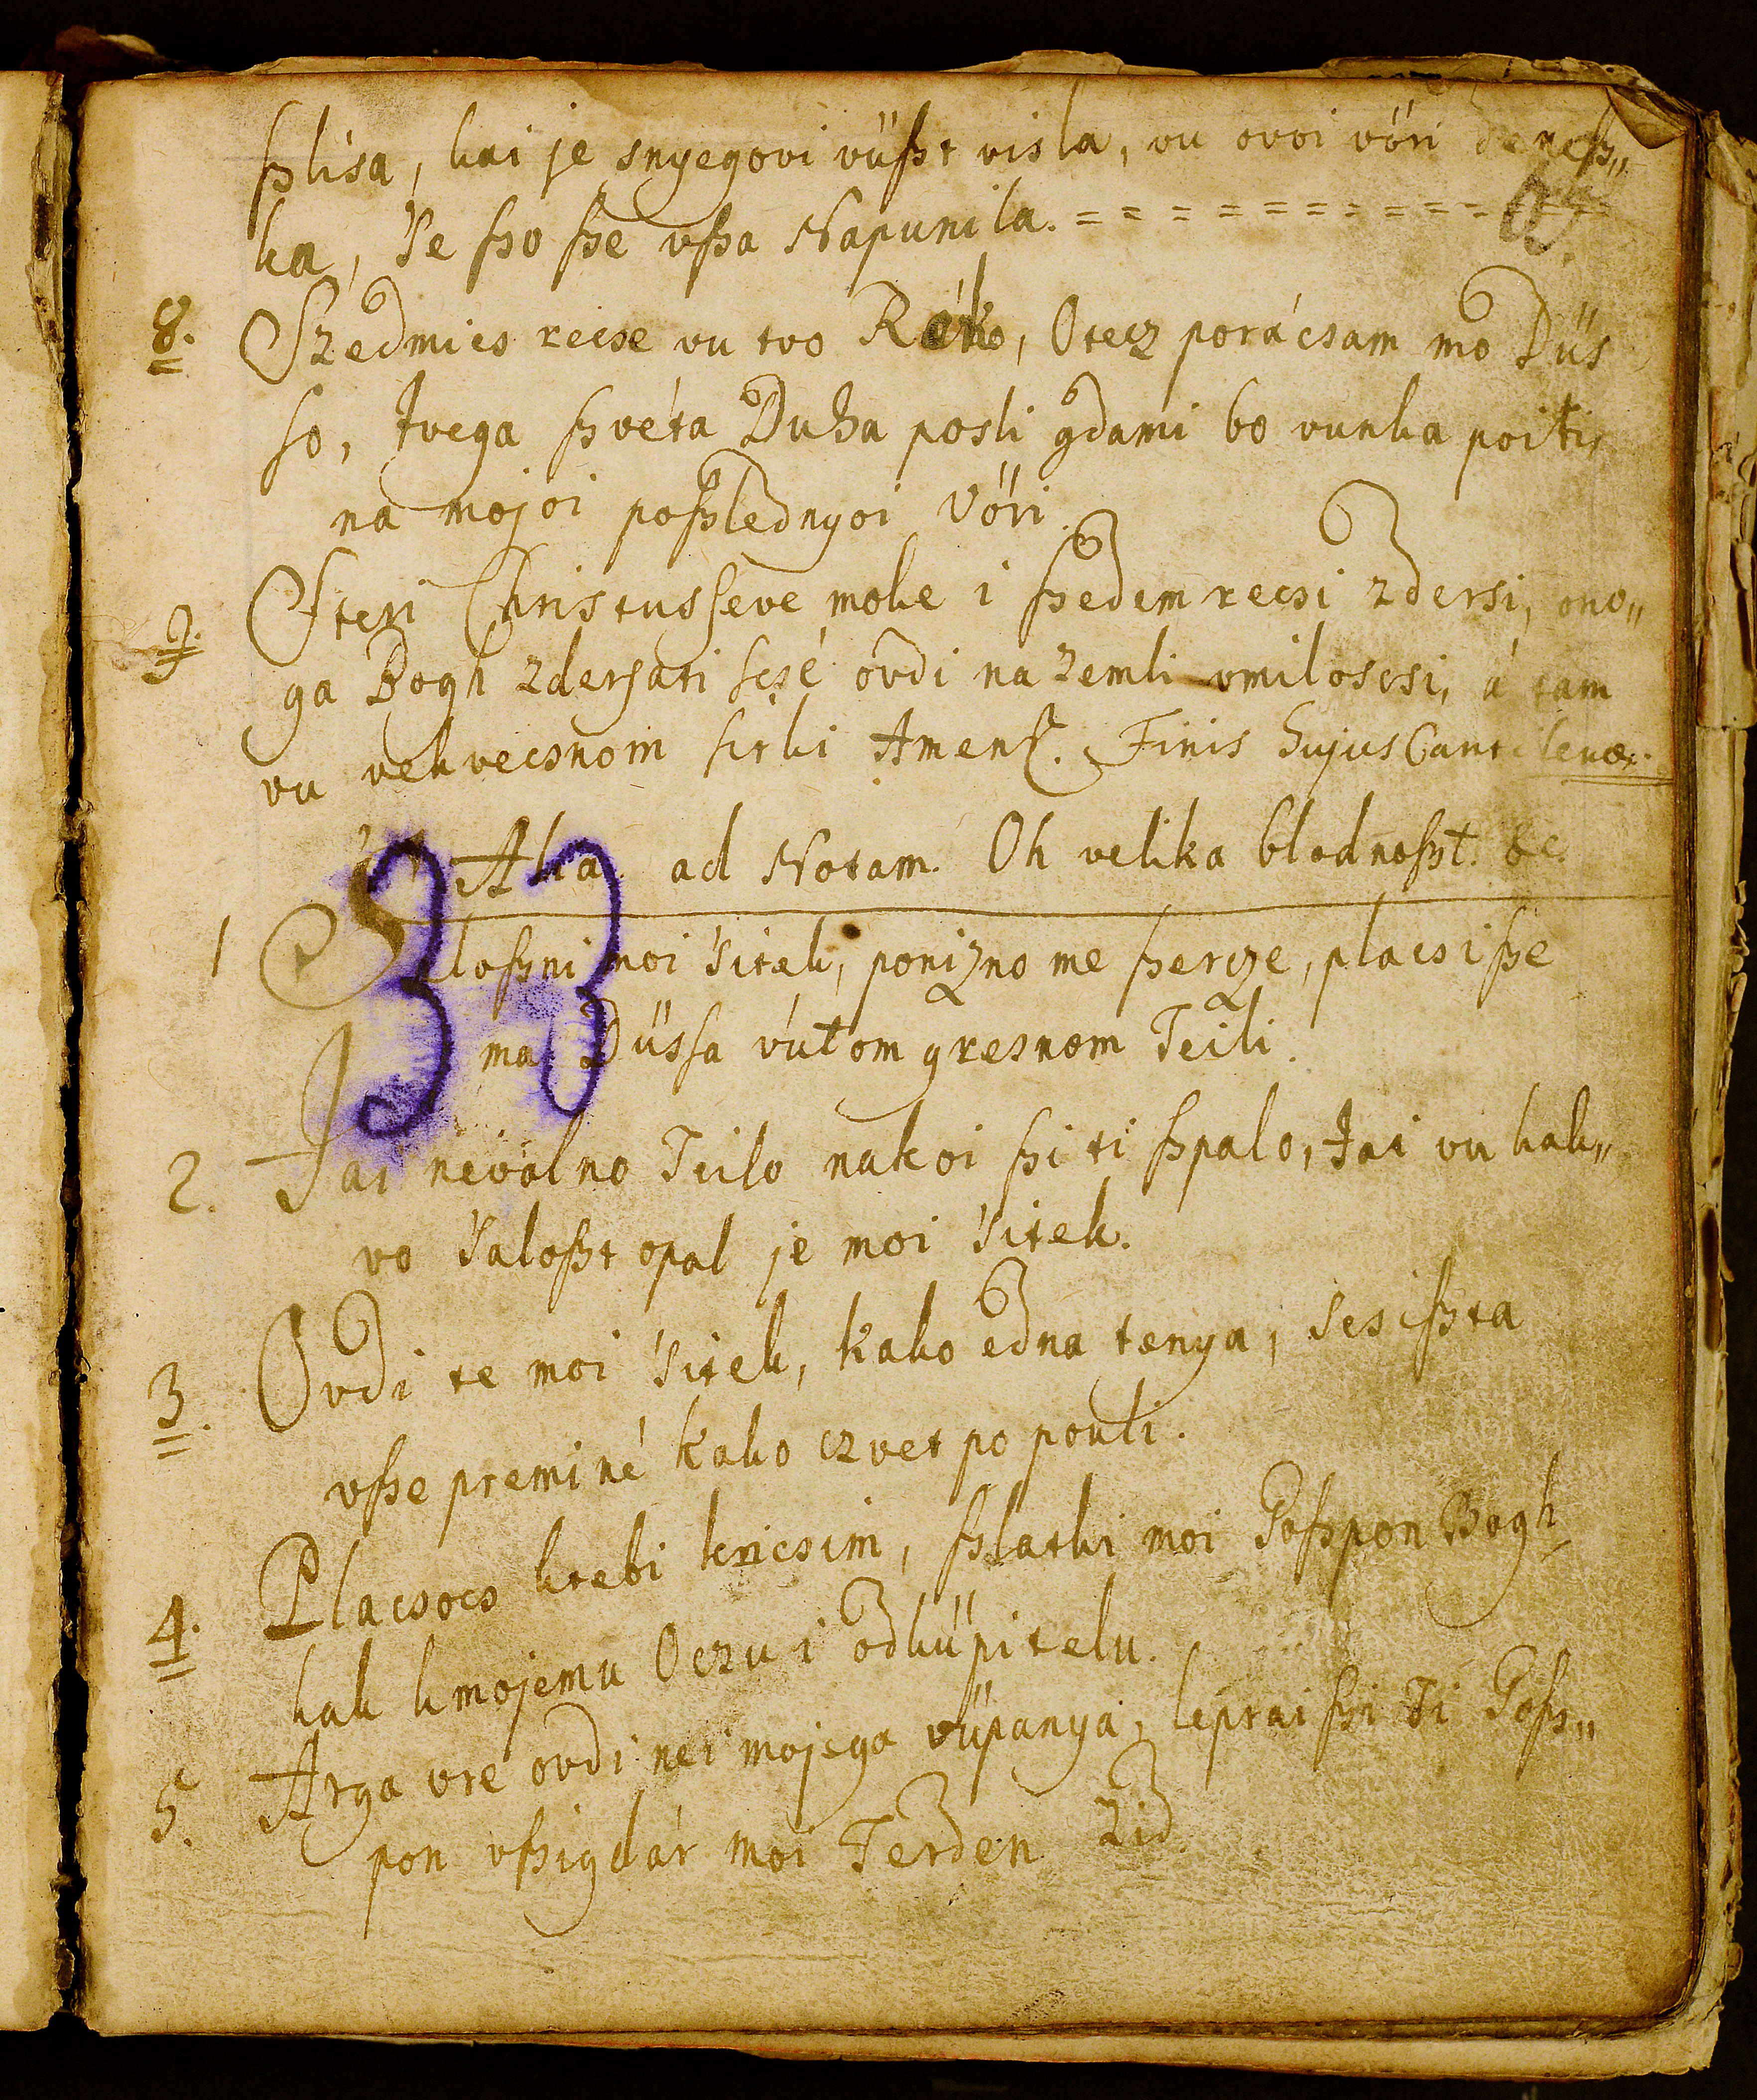 ßlisa, kai je snyegovi vüßt visla, vu ovoi vöri deneß„
ka, 'Se ßo ße vßa Napunila. = = = = = = = = = = = =
8. Szedmics recse vu tvo Roko, Otecz porácsam mo Düs
so, tvega ßvéta Duha posli gdami bo vunka poiti,
na mojoi poßlednyoi Vöri.
9. Steri Christusseve moke i ßedem recsi zdersi, ono„
ga Bogh zdersati scsé ovdi na zemli vmiloscsi, á tam
vu vekvecsnom sitki Amen. Finis hujus Cantilenæ.
33
Alia. ad Notam. Oh velika blodnoßt. &c.
1 Saloßni moi 'sitek, ponizno me ßercze, placsiße
ma Düssa vútom gresnom Teili.
2. Jai nevolno Teilo nakoi ßi ti ßpalo, Jai vu kak„
vo 'Saloßt opal je moi 'sitek.
3. Ovdi te moi 'sitek, kako edna tenya, ses ißta
vße preminé kako czvet po pouli.
4. Placsocs ktebi kricsim, ßlatki moi Goßpon Bogh
kak kmojemu Oczu i odküpitelu.
5. Arga vre ovdi nei mojega vüpanya, lepraißi Ti Goß„
pon vßigdár moi Terden Zid